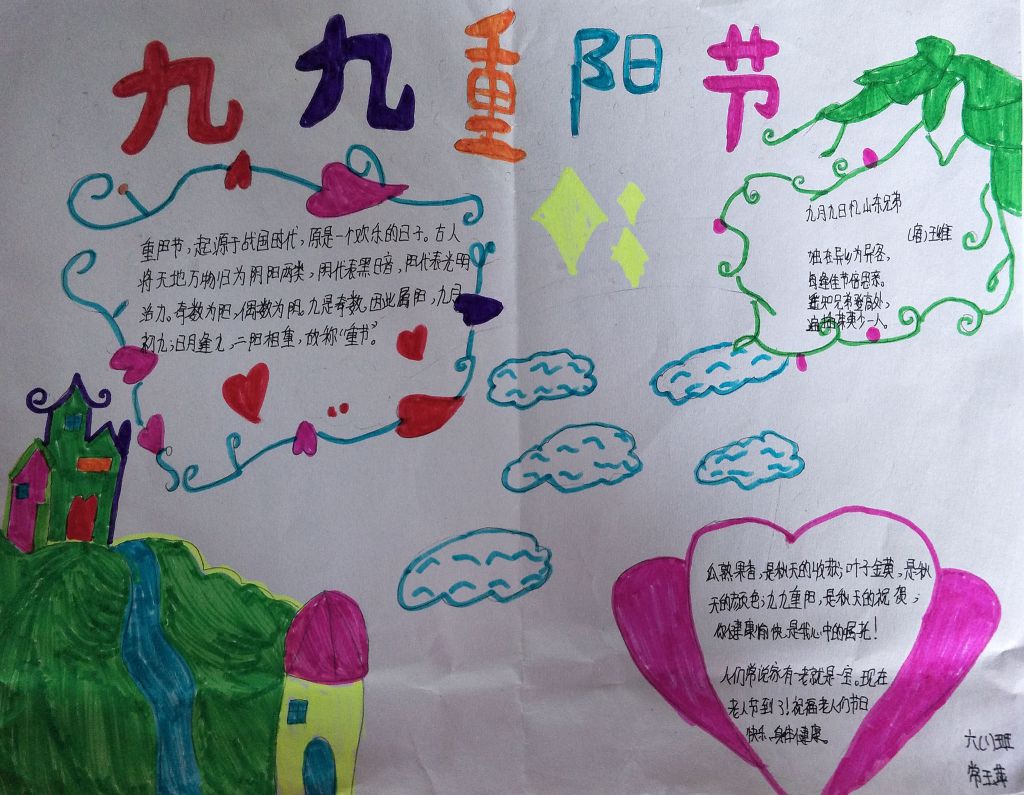 九九重阳节
重阳节，起源于战国时代，原是一个欢乐的日子。古人
将天地万物归为阴阳两类，阴代表黑暗，阳代表光明
治力。奇数为阳，偶数为阴。九是奇数，因此属阳，九月
初九，日月逢九，二阳相重，故称“重节”。
九月九日忆山东兄弟
(唐)王维
独在异乡为异客，
每逢佳节倍思亲。
遥知兄弟登高处，
遍插茱萸少一人。
瓜熟果香，是秋天的收获；叶子金黄，是秋
天的颜色；九九重阳，是秋天的祝贺；
你健康愉快是我心中的嘱托！
人们常说家有一老就是一宝。现在
老人节到了！祝福老人们节日
快乐、身体健康。
六(1)班
常玉萍